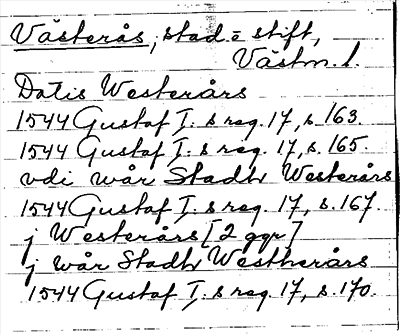 Västerås, stad = stift,
Västm. l.
Datis Westerårs
1544 Gustaf I:s reg. 17, s. 163.
1544 Gustaf I:s reg. 17, s. 165.
vdi wår Stadh Westerårs
1544 Gustaf I:s reg. 17, s. 167.
j Westerårs [2 ggr]
j wår Stadh Westherårs
1544 Gustaf I:s reg. 17, s. 170.